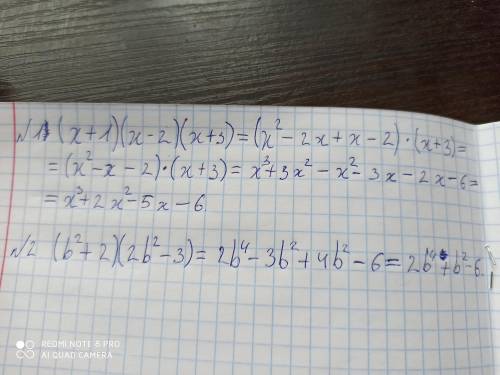 №1 (x+1)(x-2)(x+3)=(x²-2x+x-2)·(x+3)=
=(x²-x-2)·(x+3)=x³+3x²-x²-3x-2x-6=
=x³+2x²-5x-6
№2 (b²+2)(2b²-3)=2b⁴-3b²+4b²-6=2b⁴+b²-6.
REDMI NOTE 8 PRO
AI QUAD CAMERA